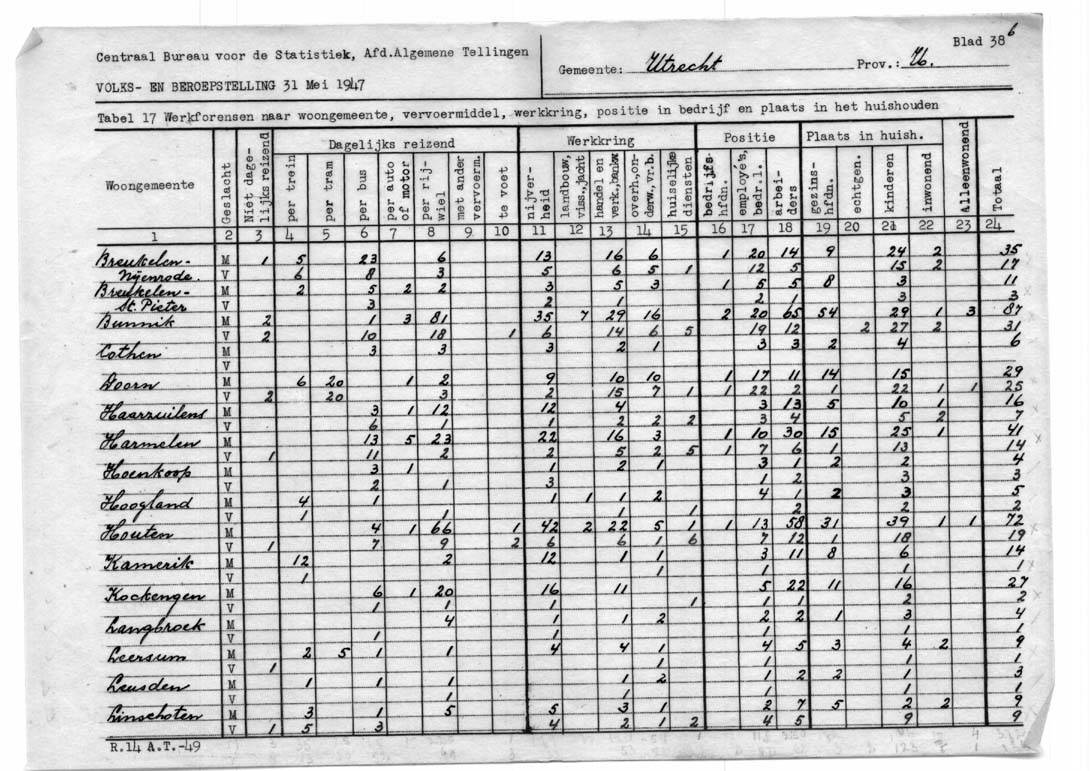 Centraal Bureau voor de Statistiek, Afd.Algemene Tellingen
VOLKS- EN BEROEPSTELLING 31 Mei 1947
Gemeente: Utrecht Prov.: U. Blad 38 b
Tabel 17 Werkforensen naar woongemeente, vervoermiddel, werkkring, positie in bedrijf en plaats in het huishouden
Woongemeente Geslacht Niet dage-lijks reizend Dagelijks reizend Werkkring Positie Plaats in huish. Alleenwonend Totaal
per trein per tram per bus per auto of motor per rij-wiel met ander vervoerm. te voet nijver-heid landbouw, viss.,jacht handel en verk.,bankw overh.,on-derw.,vr.b. huiselijke diensten bedrijfs-hfdn. employé's, bedr.l. arbei-ders gezins-hfdn. echtgen. kinderen inwonend
1 2 3 4 5 6 7 8 9 10 11 12 13 14 15 16 17 18 19 20 21 22 23 24
Breukelen- M 1 5 23 6 13 16 6 1 20 14 9 24 2 35
Nijenrode V 6 8 3 5 6 5 1 12 5 15 2 17
Breukelen- M 2 5 2 2 3 5 3 1 5 5 8 3 11
St. Pieter V 3 2 1 2 1 3 3
Bunnik M 2 1 3 81 35 7 29 16 2 20 65 54 29 1 3 87
V 2 10 18 1 6 14 6 5 19 12 2 27 2 31
Cothen M 3 3 3 2 1 3 3 2 4 6
V
Doorn M 6 20 1 2 9 10 10 1 17 11 14 15 29
V 2 20 3 2 15 7 1 1 22 2 1 22 1 1 25
Haarzuilens M 3 1 12 12 4 3 13 5 10 1 16
V 6 1 1 2 2 2 3 4 5 2 7
Harmelen M 13 5 23 22 16 3 1 10 30 15 25 1 41
V 1 11 2 2 5 2 5 1 7 6 1 13 14
Hoenkoop M 3 1 1 2 1 3 1 2 2 4
V 2 1 3 1 2 3 3
Hoogland M 4 1 1 1 1 2 4 1 2 3 5
V 1 1 1 1 2 2 2
Houten M 4 1 66 1 42 2 22 5 1 1 13 58 31 39 1 1 72
V 1 7 9 2 6 6 1 6 7 12 1 18 19
Kamerik M 12 2 12 1 1 3 11 8 6 14
V 1 1 1 1 1
Kockengen M 6 1 20 16 11 5 22 11 16 27
V 1 1 1 1 1 1 2 2
Langbroek M 4 1 1 2 2 2 1 3 4
V 1 1 1 1 1
Leersum M 2 5 1 1 4 4 1 4 5 3 4 2 9
V 1 1 1 1 1
Leusden M 1 1 1 1 2 1 2 2 1 3
V 1 1 1 1 1
Linschoten M 3 1 5 5 3 1 2 7 5 2 2 9
V 1 5 3 4 2 1 2 4 5 9 9
R.14 A.T.-49